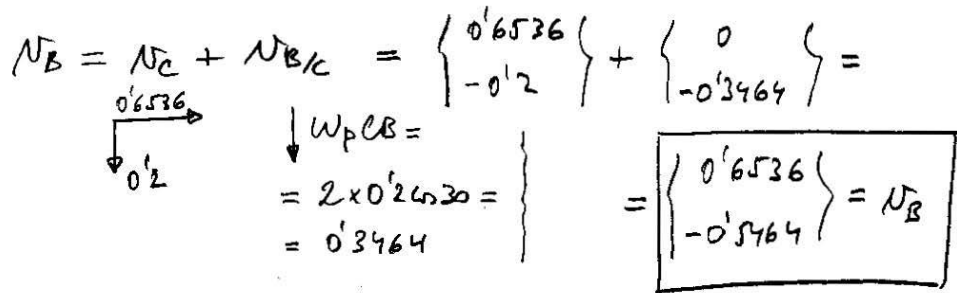 N_B = N_C + N_{B/C} = { 0'6536 -0'2 } + { 0 -0'3464 } =
0'6536
0'2
↓ W_P CB =
= 2 × 0'2 cos 30 =
= 0'3464
= { 0'6536 -0'5464 } = N_B